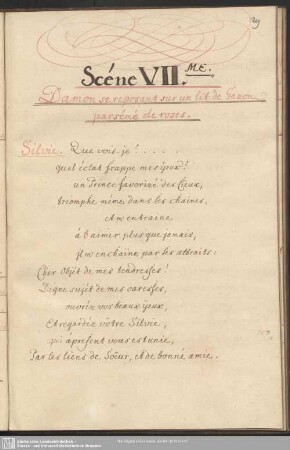 29
Scéne VII.ME.
Damon se reposant sur un lit de Gazon
parsémé de roses.
Silvie. Que vois je! . . . .
quel éclat frappe mes yeux!
un Prince favorizé des Cieux,
triomphe même dans les chaines,
et m'entraine
à l'aimer plus que jamais,
il m'enchaine par les attraits:
Cher Objét de mes tendresses!
Digne sujét de mes caresses,
ouvréz vos beaux yeux,
Et regardéz vôtre Silvie,
qui àprésent vous est unie,
Par les liens de Soeur, et de bonne amie.